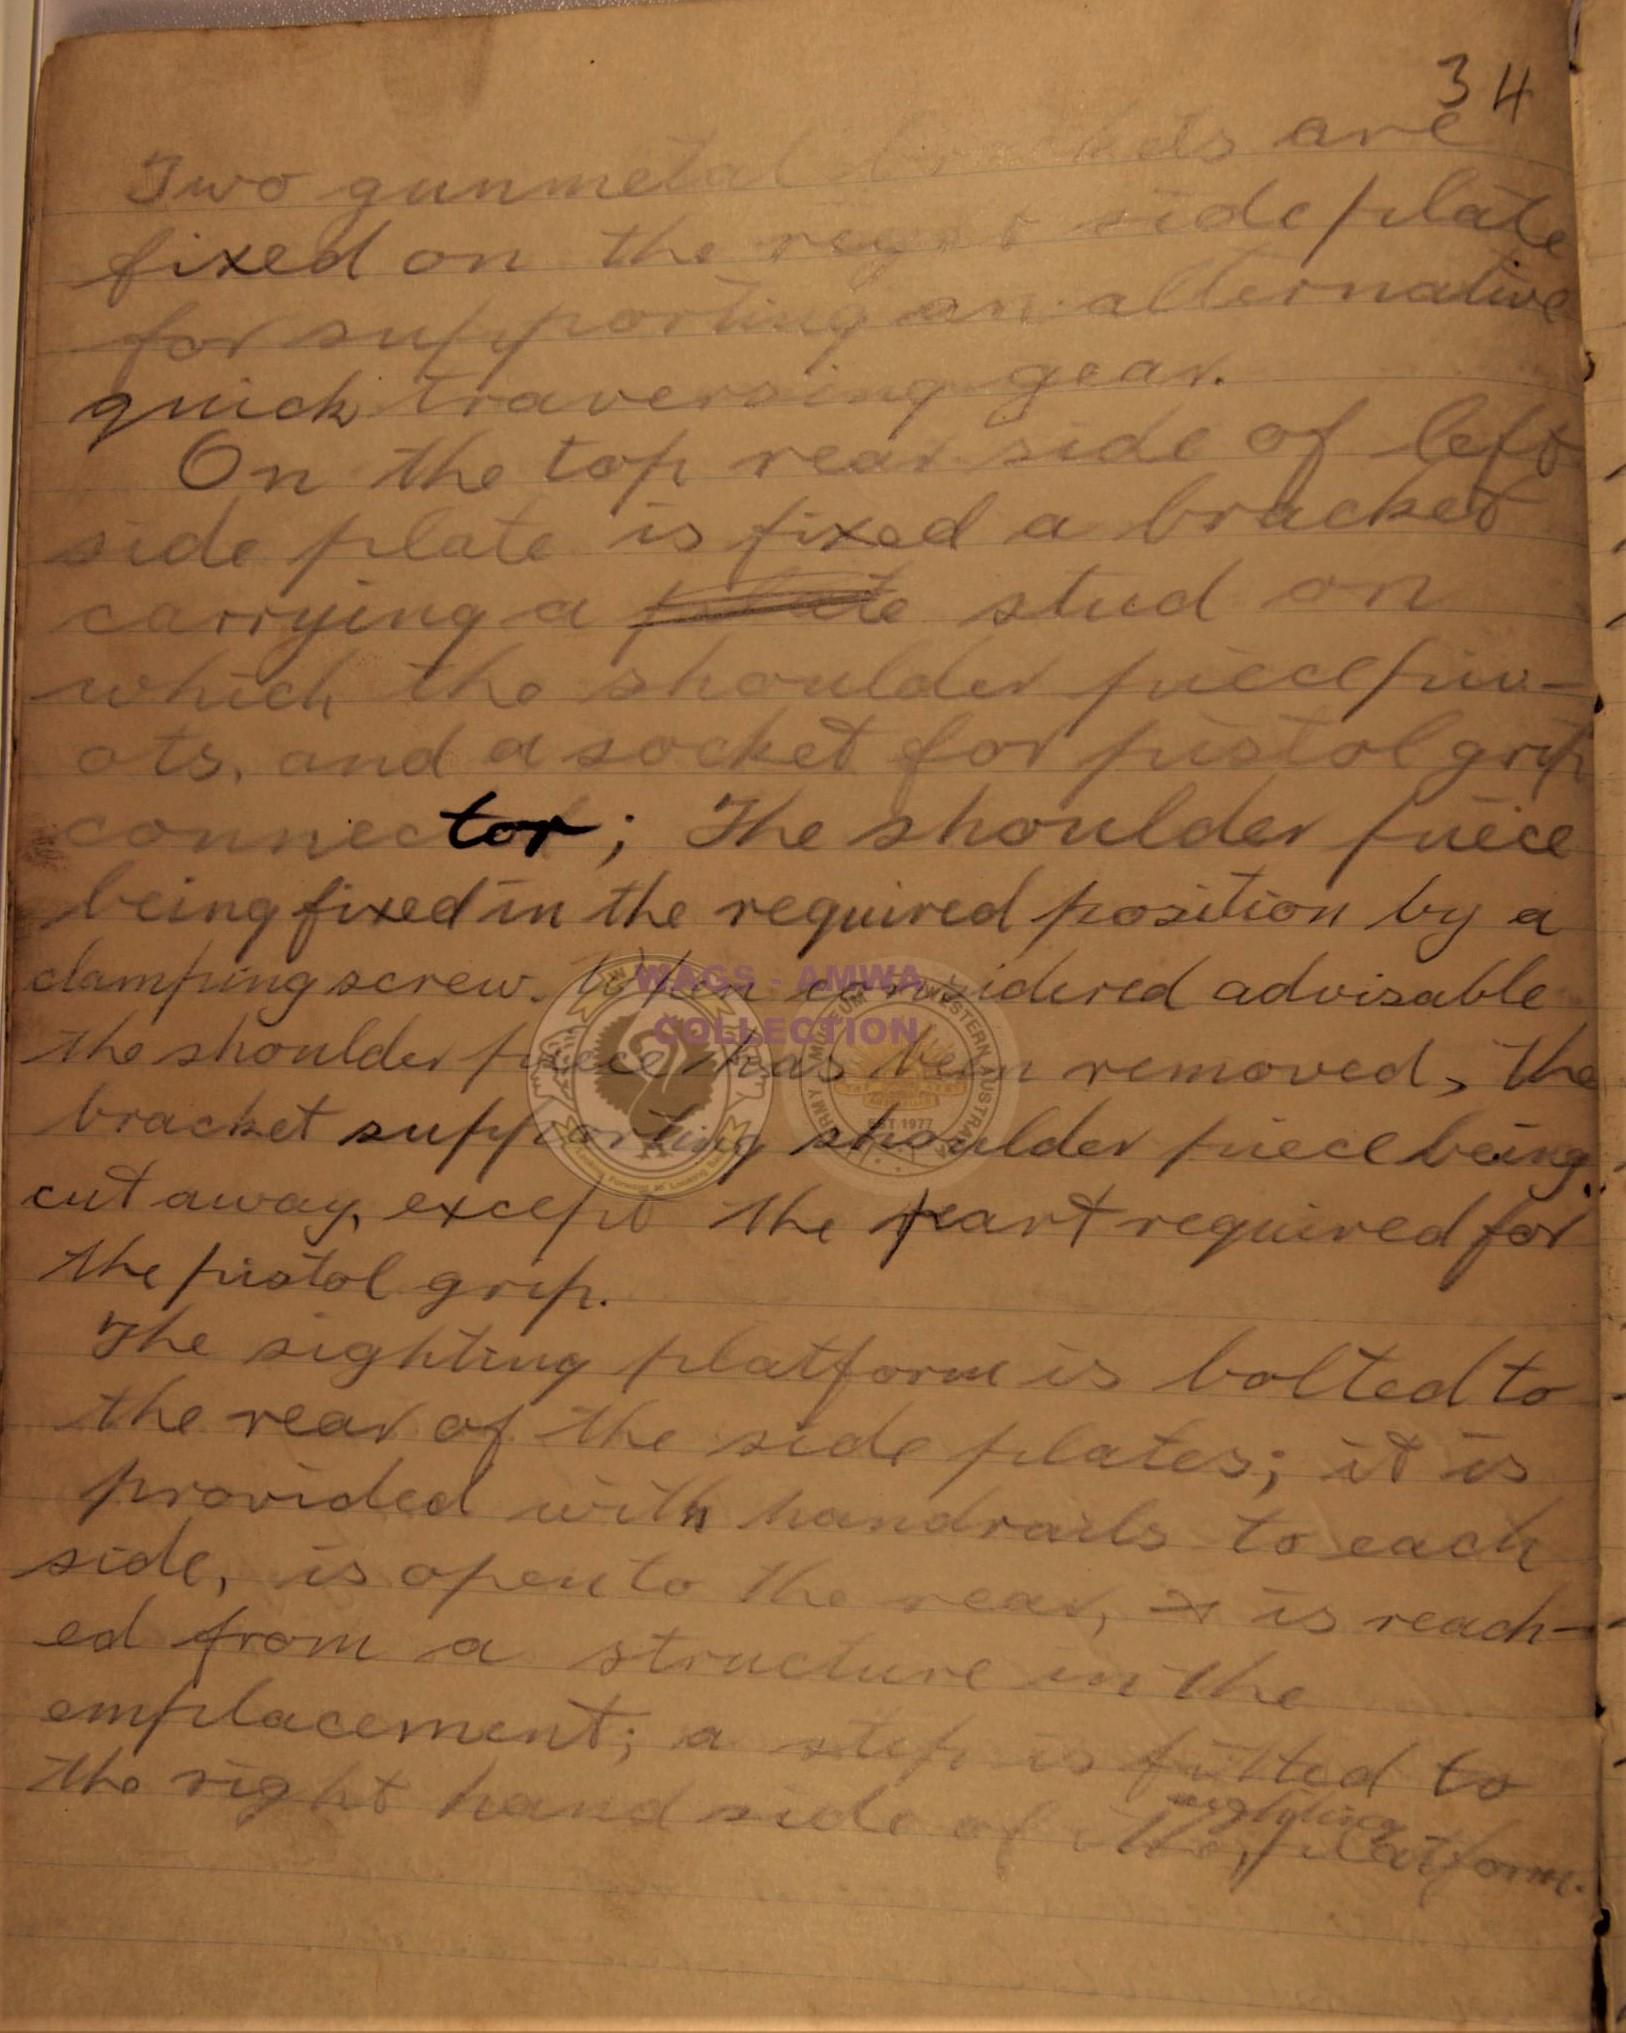 34
Two gunmetal brackets are
fixed on the right side plate
for supporting an alternative
quick traversing gear.
On the top rear side of left
side plate is fixed a bracket
carrying a plate stud on
which the shoulder piece piv-
ots, and a socket for pistol grip
connector; The shoulder piece
being fixed in the required position by a
clamping screw. When considered advisable
the shoulder piece has been removed, the
bracket supporting shoulder piece being
cut away, except the part required for
the pistol grip.
The sighting platform is bolted to
the rear of the side plates; it is
provided with handrails to each
side, is open to the rear, & is reach-
ed from a structure in the
emplacement; a step is fitted to
the right hand side of the sighting platform.
WAGS - AMWA
COLLECTION
ARMY MUSEUM OF WESTERN AUSTRALIA
EST 1977